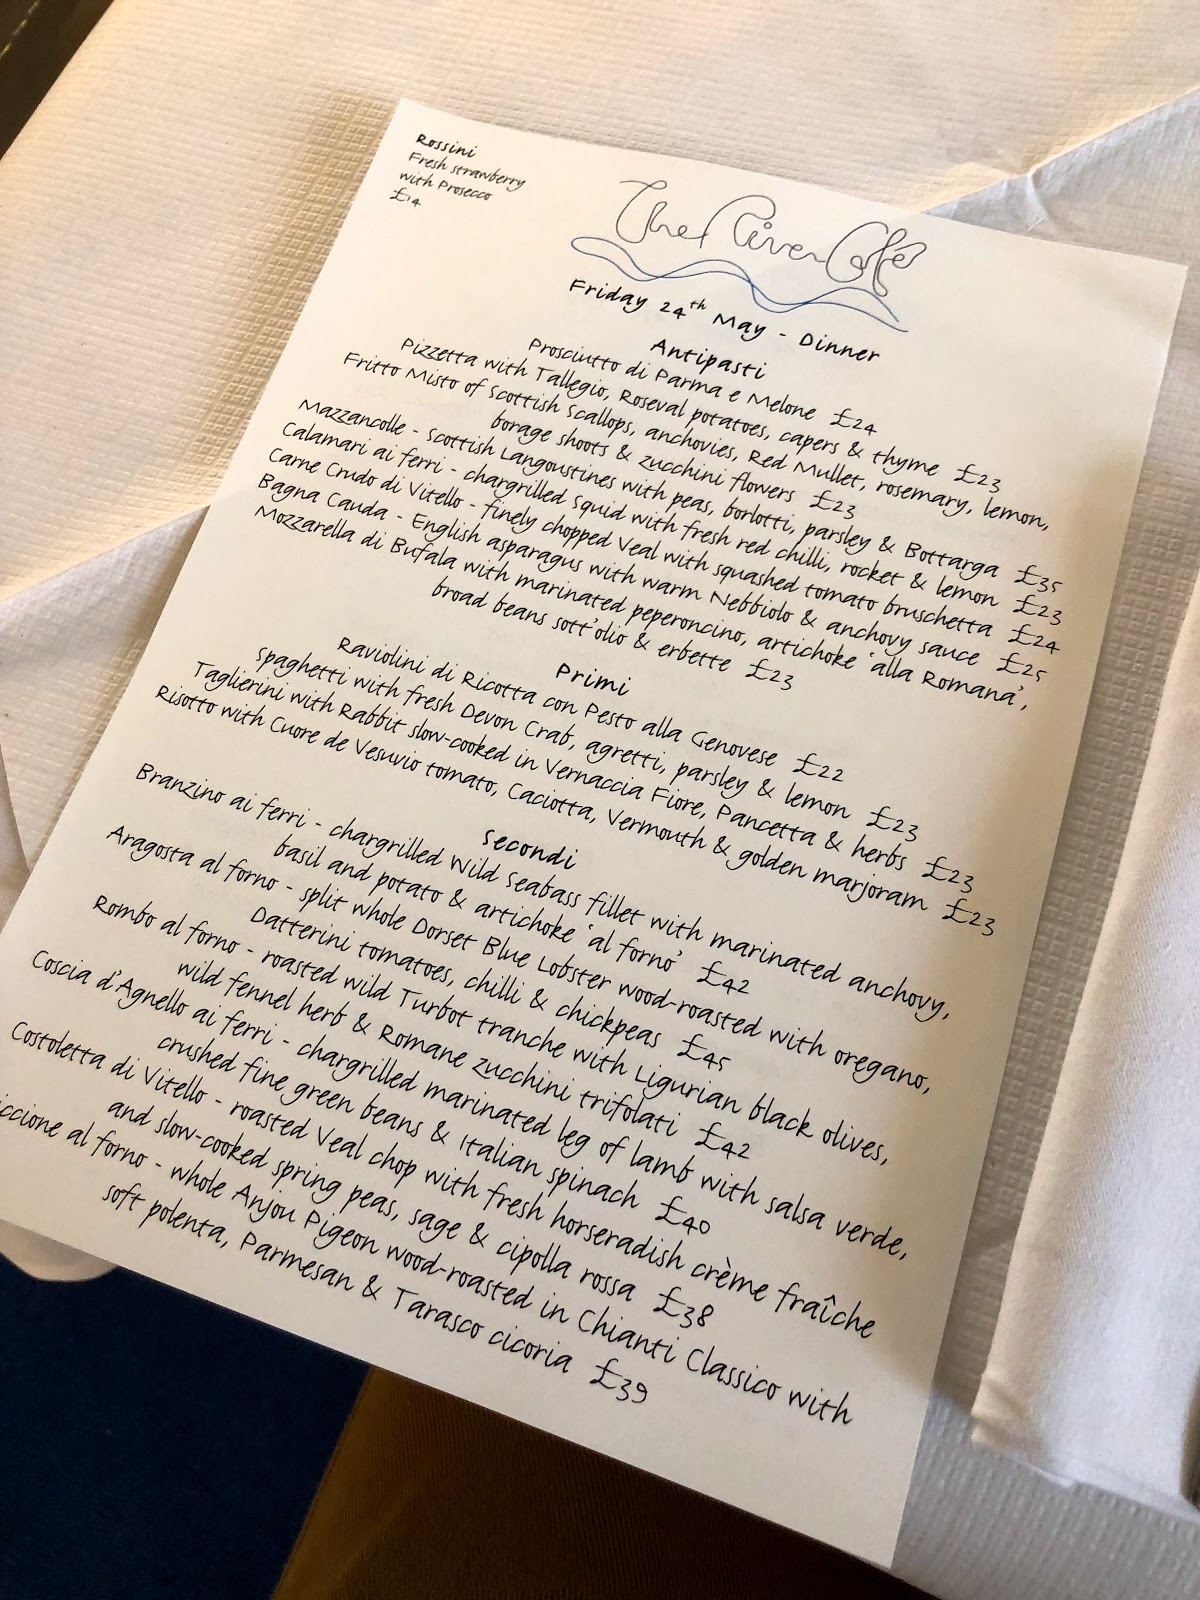 Rossini
Fresh strawberry
with Prosecco
£14
The River Café
Friday 24th May - Dinner
Antipasti
Prosciutto di Parma e Melone £24
Pizzetta with Tallegio, Roseval potatoes, capers & thyme £23
Fritto Misto of Scottish Scallops, anchovies, Red Mullet, rosemary, lemon,
borage shoots & zucchini flowers £23
Mazzancolle - Scottish Langoustines with peas, borlotti, parsley & Bottarga £35
Calamari ai ferri - chargrilled Squid with fresh red chilli, rocket & lemon £23
Carne Crudo di Vitello - finely chopped Veal with squashed tomato bruschetta £24
Bagna Cauda - English asparagus with warm Nebbiolo & anchovy sauce £25
Mozzarella di Bufala with marinated peperoncino, artichoke 'alla Romana',
broad beans sott'olio & erbette £23
Primi
Raviolini di Ricotta con Pesto alla Genovese £22
Spaghetti with fresh Devon Crab, agretti, parsley & lemon £23
Taglierini with Rabbit slow-cooked in Vernaccia Fiore, Pancetta & herbs £23
Risotto with Cuore de Vesuvio tomato, Caciotta, Vermouth & golden marjoram £23
Secondi
Branzino ai ferri - chargrilled Wild Seabass fillet with marinated anchovy,
basil and potato & artichoke 'al forno' £42
Aragosta al forno - split whole Dorset Blue Lobster wood-roasted with oregano,
Datterini tomatoes, chilli & chickpeas £45
Rombo al forno - roasted wild Turbot tranche with Ligurian black olives,
wild fennel herb & Romane zucchini trifolati £42
Coscia d'Agnello ai ferri - chargrilled marinated leg of lamb with salsa verde,
crushed fine green beans & Italian spinach £40
Costoletta di Vitello - roasted Veal chop with fresh horseradish crème fraîche
and slow-cooked spring peas, sage & cipolla rossa £38
iccione al forno - whole Anjou Pigeon wood-roasted in Chianti Classico with
soft polenta, Parmesan & Tarasco cicoria £39